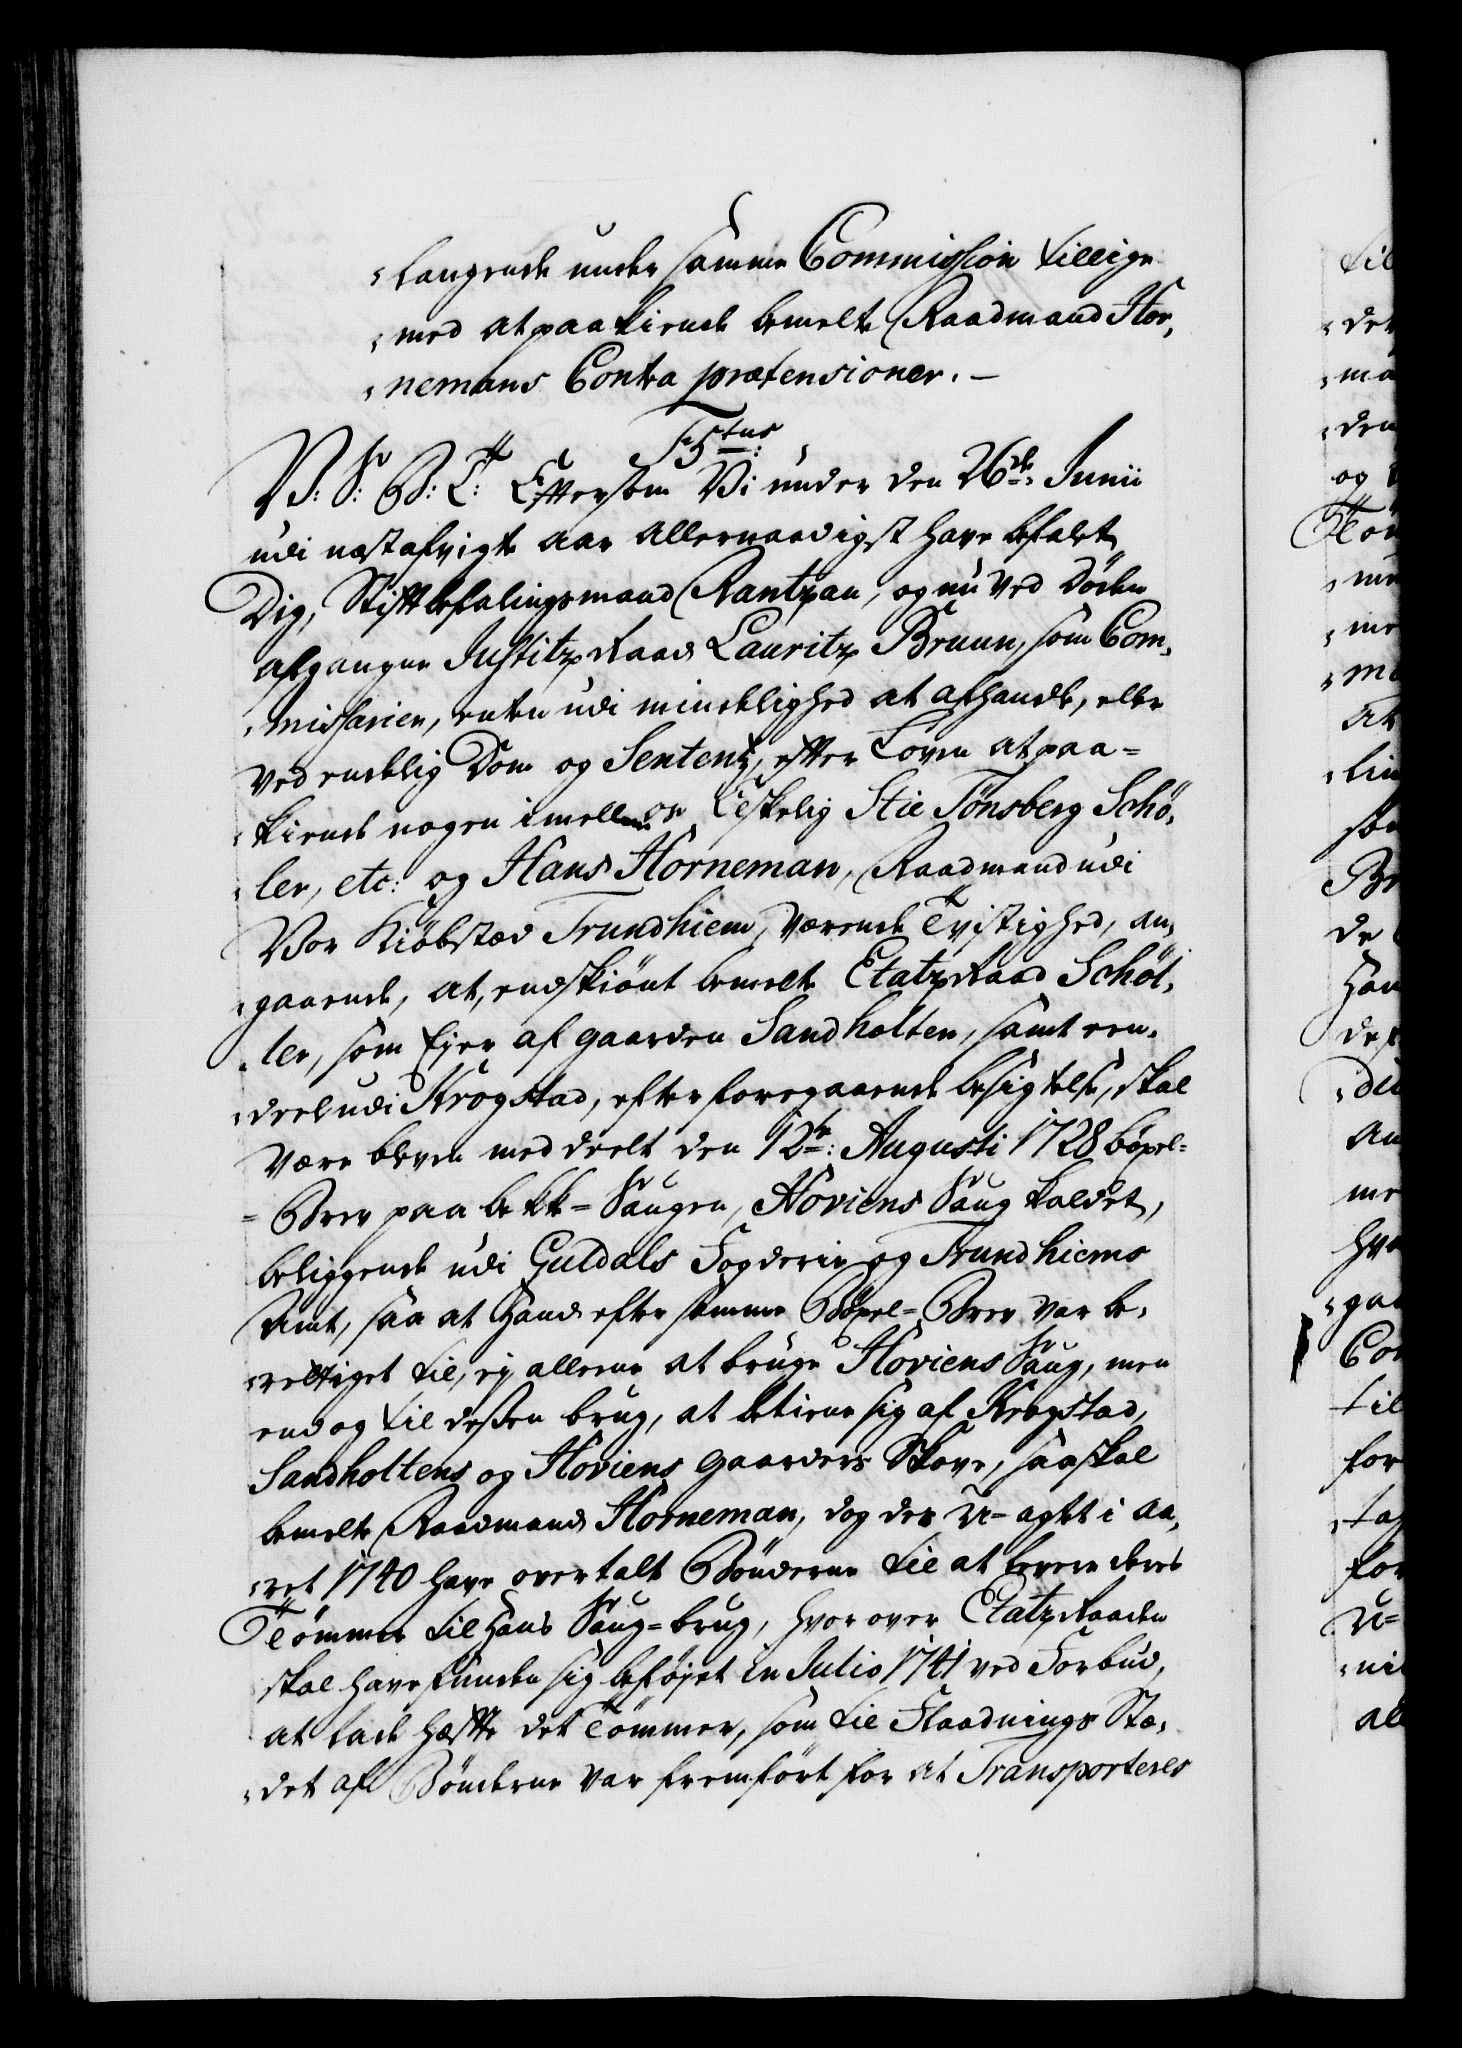 „langende under samme Commission tillige
„med at paakiende bemelte Raadmand Hor„
„nemans Contra prætensioner. –
F5tus
V: S: B: T: Eftersom Vi under den 26de Junii
udi næstafvigte aar allernaadigst have befalet
Dig, Stiftbefalingsmand Rantzau, og nu ved Döden
afgangne Justitz Raad Lauritz Bruun, som Com„
„missarier, enten udi mindelighed at afhandle, eller
ved endelig Dom og Sententz, efter Loven at paa=
„kiende nogen imellem os Elskelig Stie Tönsberg Schö„
„ler, etc: og Hans Horneman, Raadmand udi
Vor Kiöbsted Trundhiem, værende Tvistighed, an„
„gaaende, at, endskiönt bemelte Etatz Raad Schöl„
„ler, som Ejer af gaarden Sandholten, samt een„
„deel udi Krogstad, efter foregaaende besigtelse, skal
være bleven meddeelt den 12te: Augusti 1728 böxel=
=Brev paa bekk=Saugen, Hoviens Saug kaldet,
beliggende udi Guldals Fogderie og Trundhiems
Amt, saa at hand efter samme Böxel=Brev var be„
„rettiget til, ej allene at bruge Hoviens Saug, men
endog til dessen brug, at betiene sig af Krogstad,
Sandholtens og Hoviens gaarders Skove, saa skal
bemelte Raadmand Horneman, dog der U=agtet i aa„
„ret 1740 have overtalt Bönderne til at levere deres
Tömmer til hans Saug=brug, hvorover Etatz Raaden
skal have funden sig beföjet in Julio 1741 ved Forbud,
at lade hæfte det Tömmer, som til Flaadnings Stæ„
„det af Bönderne var fremfört for at Transporteres